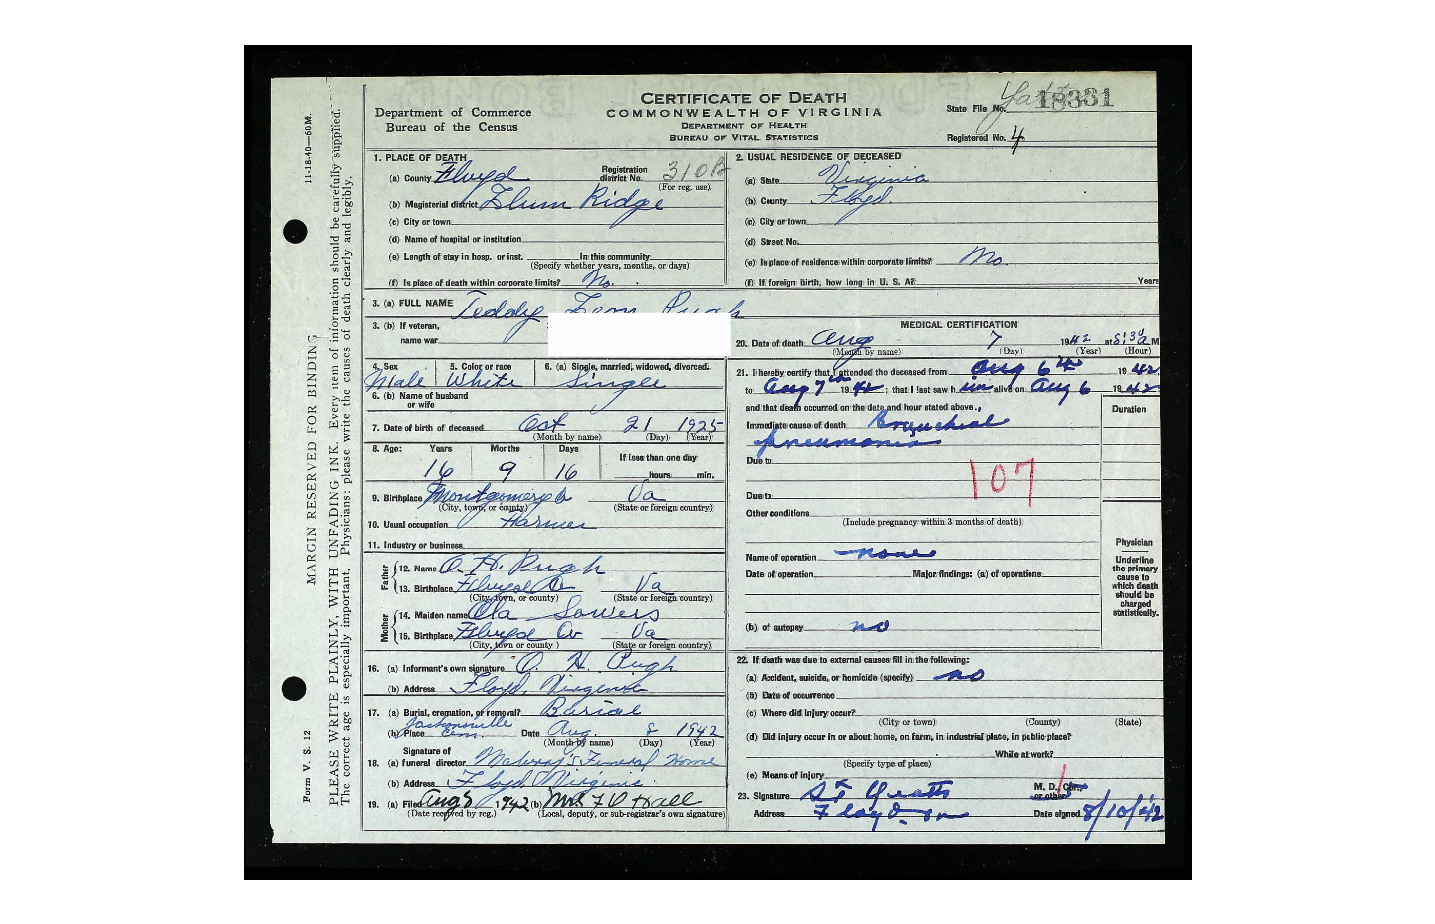 CERTIFICATE OF DEATH
COMMONWEALTH OF VIRGINIA
DEPARTMENT OF HEALTH
BUREAU OF VITAL STATISTICS
Department of Commerce
Bureau of the Census
State File No. 18331
Registered No. 4
11-18-40—60M.
MARGIN RESERVED FOR BINDING
Form V. S. 12
PLEASE WRITE PLAINLY, WITH UNFADING INK. Every item of information should be carefully supplied.
The correct age is especially important. Physicians: please write the causes of death clearly and legibly.
1. PLACE OF DEATH
(a) County Floyd Registration district No. 310B
(For reg. use)
(b) Magisterial district Elum Ridge
(c) City or town
(d) Name of hospital or institution
(e) Length of stay in hosp. or inst. In this community
(Specify whether years, months, or days)
(f) Is place of death within corporate limits? No.
2. USUAL RESIDENCE OF DECEASED
(a) State Virginia
(b) County Floyd.
(c) City or town
(d) Street No.
(e) Is place of residence within corporate limits? No.
(f) If foreign birth, how long in U. S. A? Years
3. (a) FULL NAME Teddy Leon Pugh
3. (b) If veteran,
name war
4. Sex 5. Color or race 6. (a) Single, married, widowed, divorced.
Male White Single
6. (b) Name of husband
or wife
7. Date of birth of deceased Oct 21 1925
(Month by name) (Day) (Year)
8. Age: Years Months Days If less than one day
16 9 16 hours min.
9. Birthplace Montgomery Co Va
(City, town, or county) (State or foreign country)
10. Usual occupation Farmer
11. Industry or business
Father
12. Name O. H. Pugh
13. Birthplace Floyd Co Va
(City, town, or county) (State or foreign country)
Mother
14. Maiden name Ola Sowers
15. Birthplace Floyd Co Va
(City, town or county) (State or foreign country)
16. (a) Informant's own signature O. H. Pugh
(b) Address Floyd, Virginia
17. (a) Burial, cremation, or removal? Burial
(b) Place Jacksonville Cem. Date Aug. 8 1942
(Month by name) (Day) (Year)
Signature of
18. (a) funeral director Funeral Home
(b) Address Floyd, Virginia
19. (a) Filed Aug 8 1942 (b) Mrs F O Hall
(Date received by reg.) (Local, deputy, or sub-registrar's own signature)
MEDICAL CERTIFICATION
20. Date of death Aug 7 1942 at 8:30 A M
(Month by name) (Day) (Year) (Hour)
21. I hereby certify that I attended the deceased from Aug 6th 1942
to Aug 7th 1942; that I last saw him alive on Aug 6 1942
and that death occurred on the date and hour stated above.,
Duration
Immediate cause of death Bronchial
pneumonia
Due to
107
Due to
Other conditions
(Include pregnancy within 3 months of death)
Name of operation none
Date of operation Major findings: (a) of operations
(b) of autopsy no
Physician
Underline
the primary
cause to
which death
should be
charged
statistically.
22. If death was due to external causes fill in the following:
(a) Accident, suicide, or homicide (specify) no
(b) Date of occurrence
(c) Where did injury occur?
(City or town) (County) (State)
(d) Did injury occur in or about home, on farm, in industrial place, in public place?
While at work?
(Specify type of place)
(e) Means of injury
23. Signature M. D., Cor., or other
Address Floyd Date signed 8/10/42